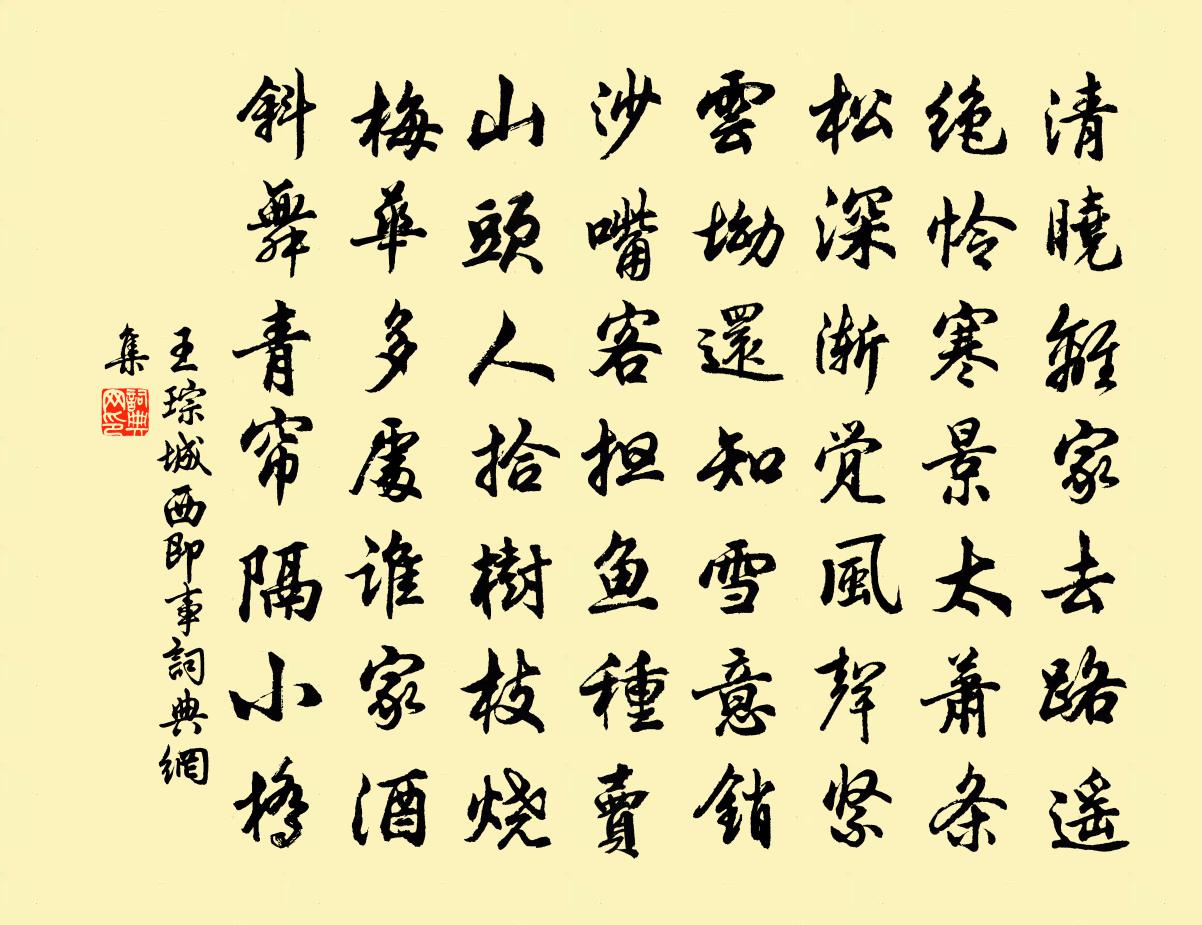 清曉離家去路遥
绝怜寒景太萧条
松深渐觉風聲紧
雲坳還知雪意銷
沙嘴客担鱼種賣
山頭人拾樹枝烧
梅華多處谁家酒
斜舞青帘隔小橋
王琮城西即事詞典網
集
詞典
网印